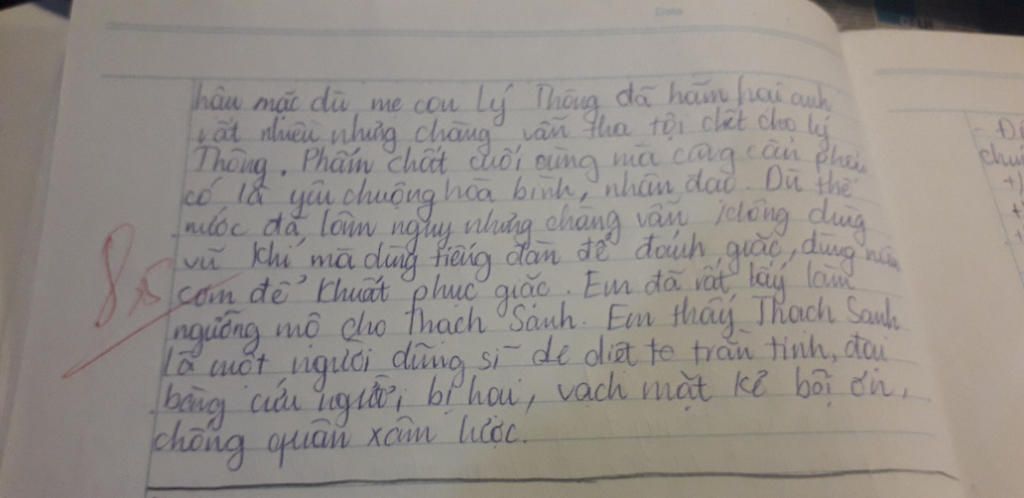 Date
hậu mặc dù mẹ con Lý Thông đã hãm hại anh
rất nhiều nhưng chàng vẫn tha tội chết cho lý
Thông. Phẩm chất cuối cùng mà cũng cần phải
có là yêu chuộng hòa bình, nhân đạo. Dù thế
nước đã lâm nguy nhưng chàng vẫn không dùng
vũ khí mà dùng tiếng đàn để đánh giặc, dùng niêu
cơm để khuất phục giặc. Em đã rất lấy làm
ngưỡng mộ cho Thạch Sanh. Em thấy Thạch Sanh
là một người dũng sĩ de diệt te trăn tinh, đại
bàng cứu người bị hại, vạch mặt kẻ bội ơn,
chống quân xâm lược.
8,5
- Đi
+)
+
+